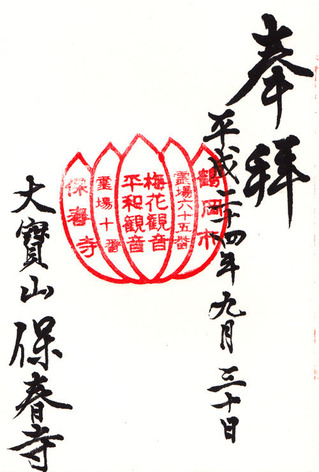 奉拝
平成二十四年九月三十日
鶴岡市
霊場六十五番
梅花観音
平和観音
霊場十番
保春寺
大寳山 保春寺